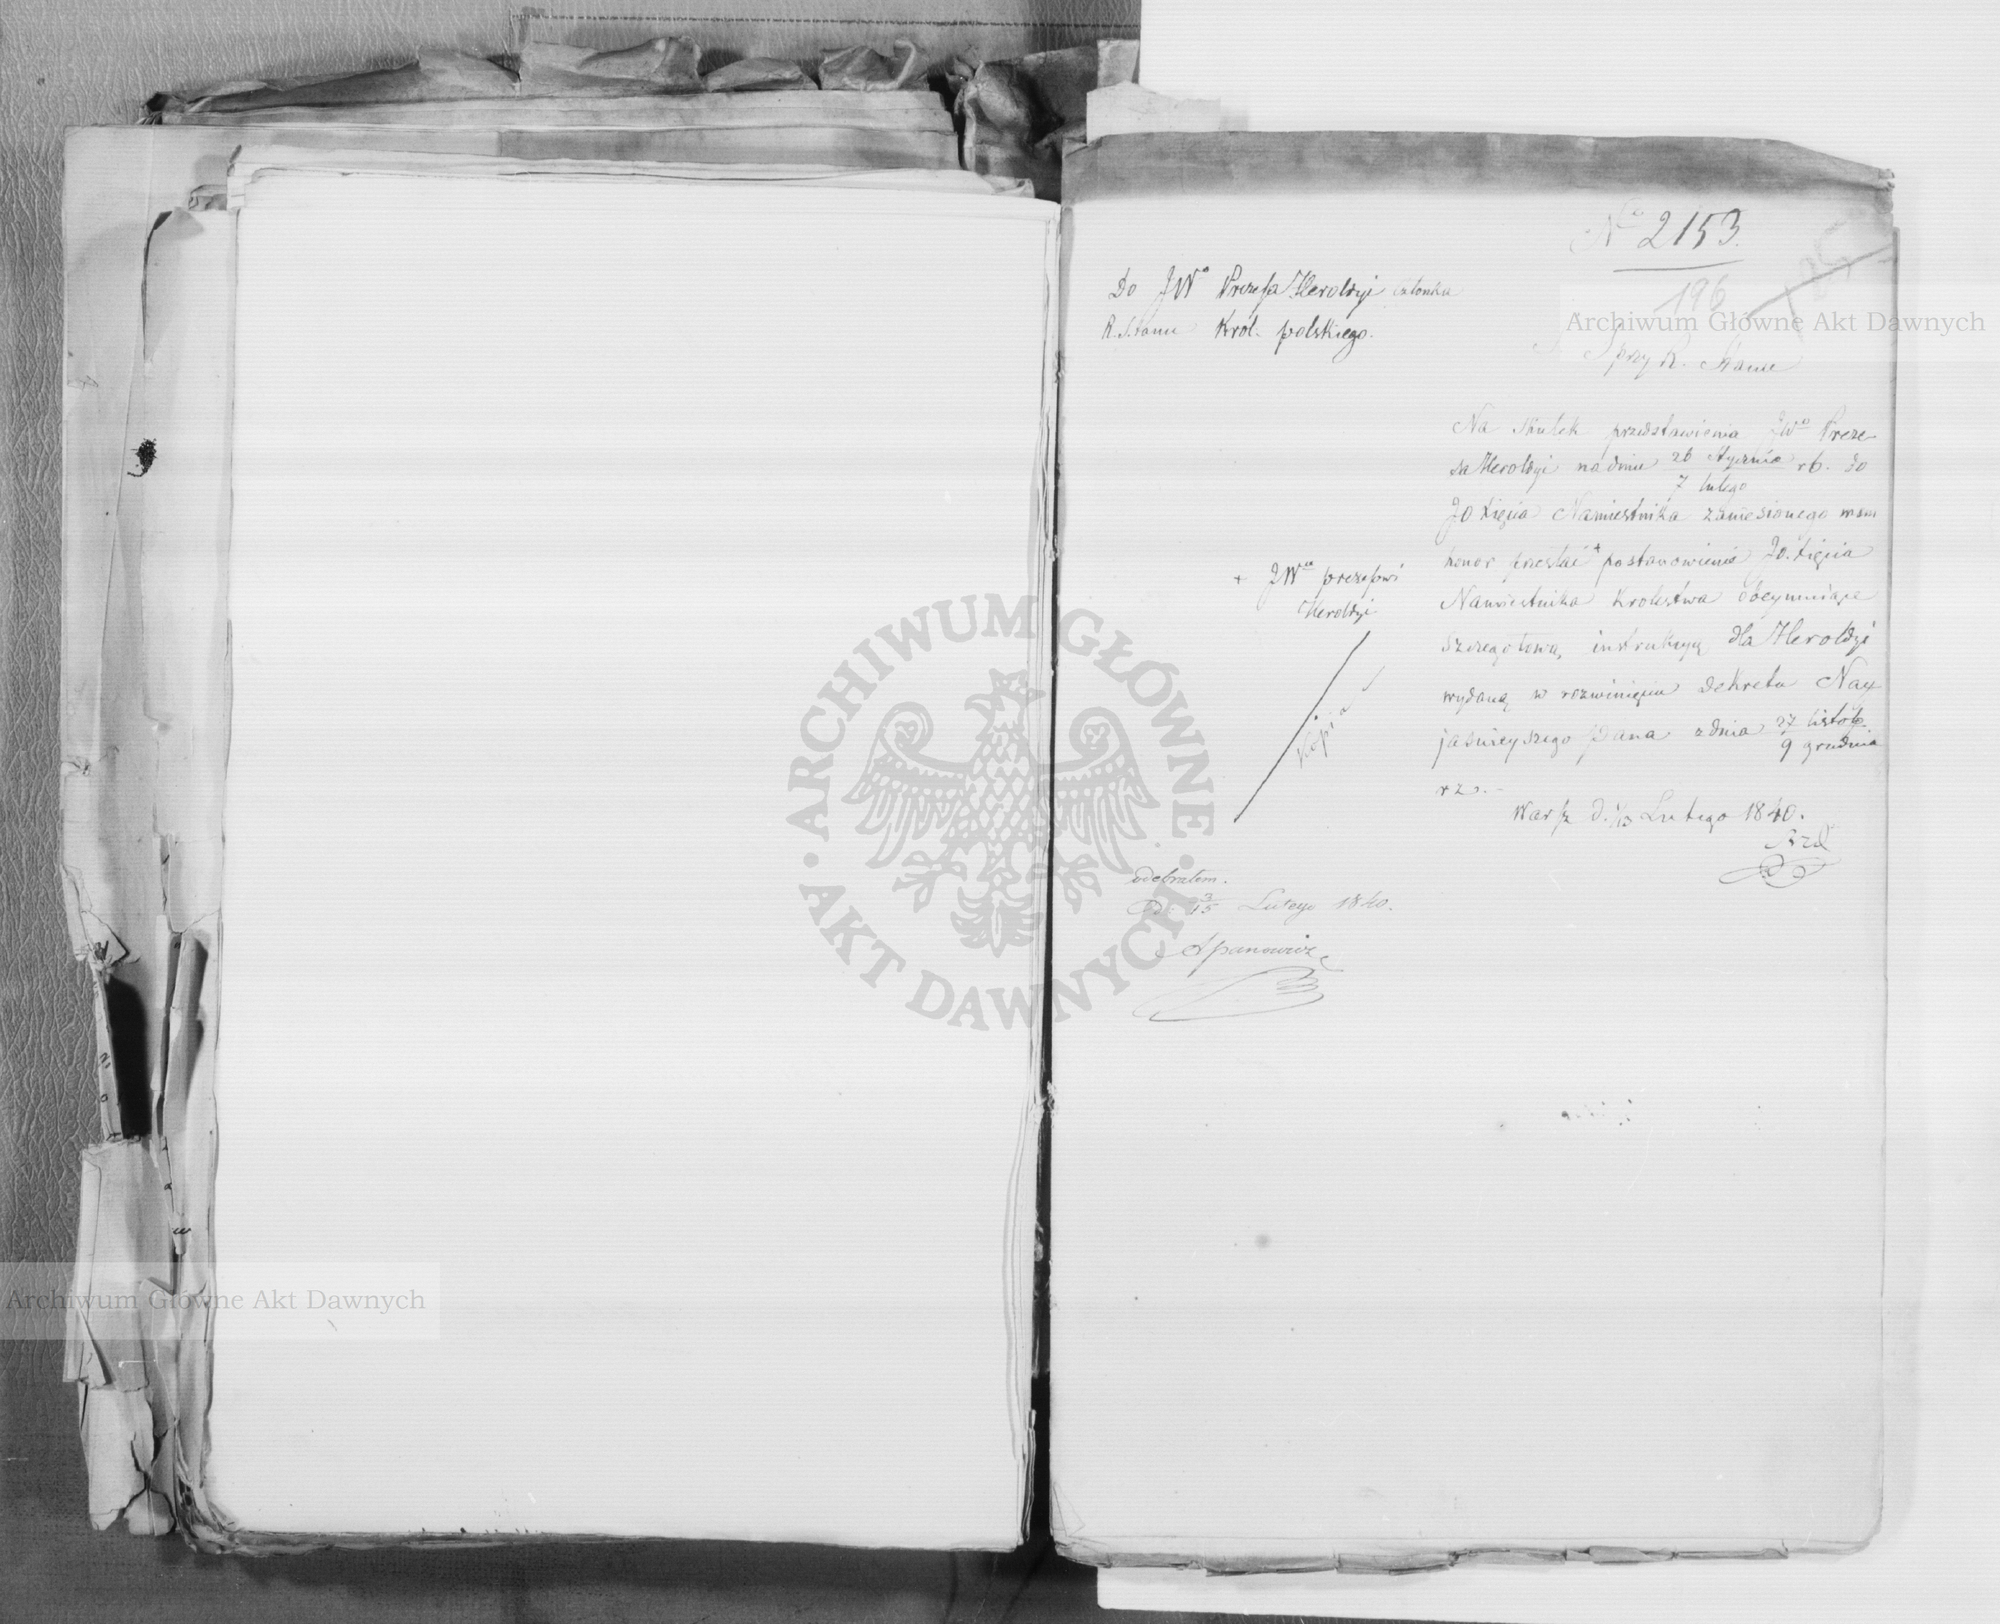 N° 2153.
196
Do JW° Prezesa Heroldyi Członka
R. Stanu Król. polskiego.
przy R. Stanu
Na skutek przedstawienia JW° Preze-
sa Heroldyi na dniu 26 Stycznia rb. do
7 lutego
JO Xięcia Namiestnika zaniesionego mam
honor przesłać + postanowienie JO. Xięcia
Namiestnika Królestwa obeymuiące
szczegołową instrukcyą dla Heroldyi
wydaną w rozwinięciu Dekretu Nay
jaśnieyszego Pana z dnia 27 listop.
9 grudnia
rz. -
Warsz. d. 1/13 Lutego 1840.
+ JWu prezesowi
Heroldyi
Kopia
odebrałem.
D: 3/15 Lutego 1840.
Apanowicz
Archiwum Główne Akt Dawnych
Archiwum Główne Akt Dawnych
ARCHIWUM GŁÓWNE
AKT DAWNYCH